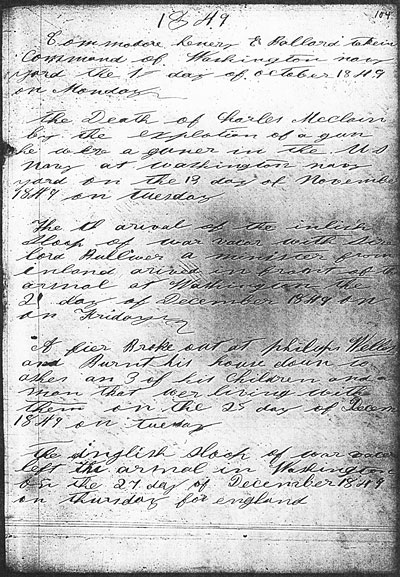 104
1849
Commodore henery E Ballard takein
Command of Washington navy
yard the 1st day of october 1849
on Monday
the Death of Charles McClain
by the explotion of a gun
he was a guner in the U S
Navy at washington navy
yard on the 19 day of November
1849 on tuesday
The arival of the inlish
Sloop of war vator with
lord Bullwer a minister from
inland arived in front of the
arnal at Washington the
21 day of December 1849 on
on Friday
A fier Broke out at philyps
and Burnt his house down to
ashes an 3 of his Children and a
man that wer living with
them on the 25 day of Decem
1849 on tuesday
the inglish Slock of war vator
left the arnal in Washington
on the 27 day of December 1849
on thursday for england